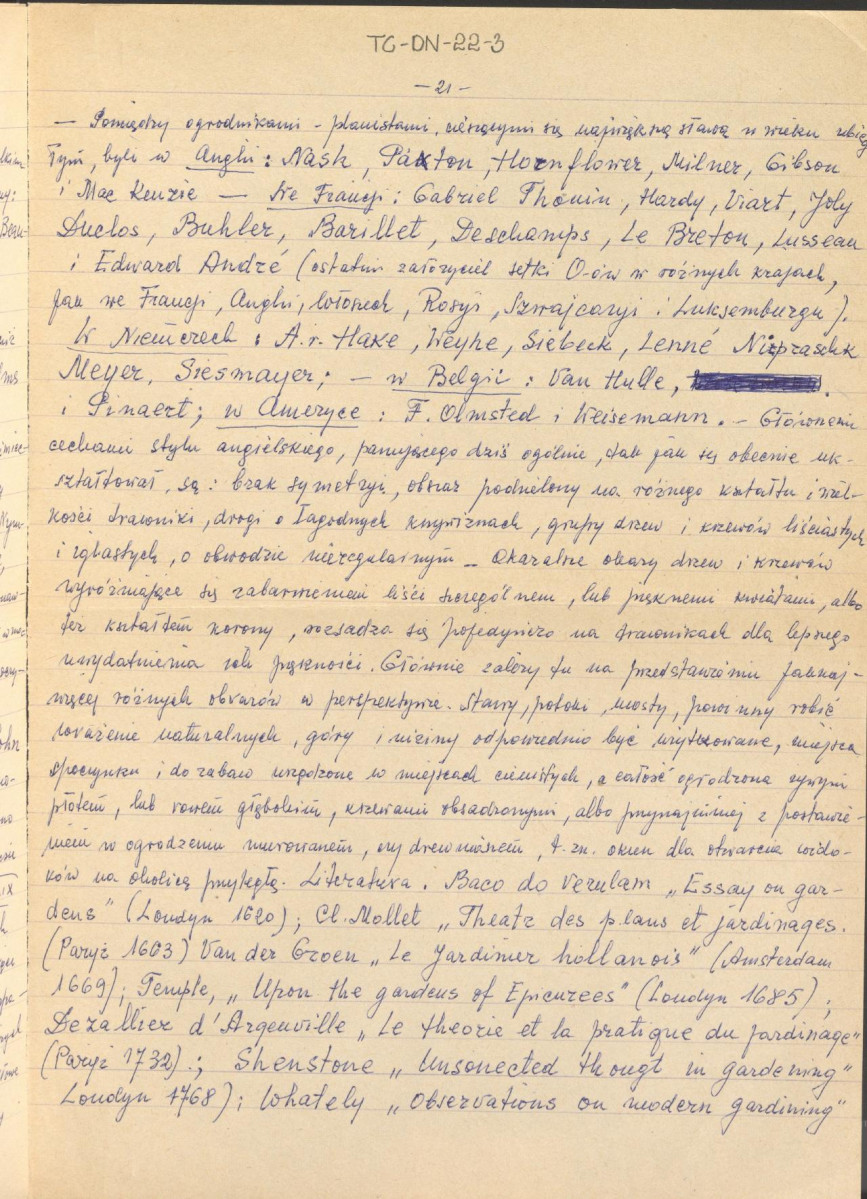 TC-DN-22-3
- 21 -
— Pomiędzy ogrodnikami - planistami, cieszącymi się największą sławą w wieku ubieg
łym, byli w Anglii: Nash, Paxton, Hornflower, Milner, Gibson
i Mac Kenzie — We Francji: Gabriel Thouin, Hardy, Viart, Joly
Duclos, Buhler, Barillet, Deschamps, Le Breton, Lusseau
i Edward André (ostatni założyciel setki O-ów w różnych krajach,
jak we Francji, Anglii, Włoszech, Rosyi, Szwajcaryi i Luksemburgu).
W Niemczech: A.v. Hake, Weyhe, Siebeck, Lenné Niepraschk
Meyer, Siesmayer; — w Belgii: Van Hulle,
i Pinaert; w Ameryce: F. Olmsted i Weisemann. — Głównemi
cechami stylu angielskiego, panującego dziś ogólnie, tak jak się obecnie uk-
ształtował, są: brak symetryi, obszar podzielony na różnego kształtu i wiel-
kości trawniki, drogi o łagodnych krzywiznach, grupy drzew i krzewów liściastych
i iglastych, o obwodzie nieregularnym — Okazalsze okazy drzew i krzewów
wyróżniające się zabarwieniem liści szczególnem, lub pięknemi kwiatami, albo
też kształtem korony, rozsadza się pojedyńczo na trawnikach dla lepszego
uwydatnienia ich piękności. Głównie zależy tu na przedstawieniu jaknaj-
więcej różnych obrazów w perspektywie. Stawy, potoki, mosty, powinny robić
wrażenie naturalnych, góry i niziny odpowiednio być użytkowane, miejsca
spoczynku i do zabaw urządzone w miejscach cienistych, a całość ogrodzona żywym
płotem, lub rowem głębokim, krzewami obsadzonymi, albo przynajmniej z postawie-
niem w ogrodzeniu murowanem, czy drewnianem, t.zn. okien dla otwarcia wido-
ków na okolicę przyległą. Literatura. Baco do Verulam „Essay on gar-
dens" (Londyn 1620); Cl. Mollet „Theatr des plans et jardinages.
(Paryż 1603) Van der Groen „Le Jardinier hollanois" (Amsterdam
1669); Temple, „Upon the gardens of Epicurees" (Londyn 1685);
Dezallier d'Argenville „Le theorie et la pratique du jardinage"
(Paryż 1732).; Shenstone „Unsonected thougt in gardening"
Londyn 1768); Whately „Observations on modern gardining"